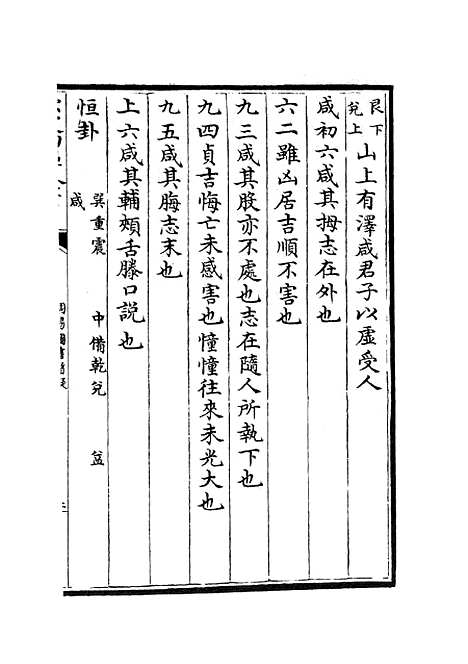 艮下兌上 山上有澤咸君子以虛受人
咸初六咸其拇志在外也
六二雖凶居吉順不害也
九三咸其股亦不處也志在隨人所執下也
九四貞吉悔亡未感害也憧憧往來未光大也
九五咸其脢志末也
上六咸其輔頰舌滕口說也
恒卦 巽重震 中備乾兌 益
咸